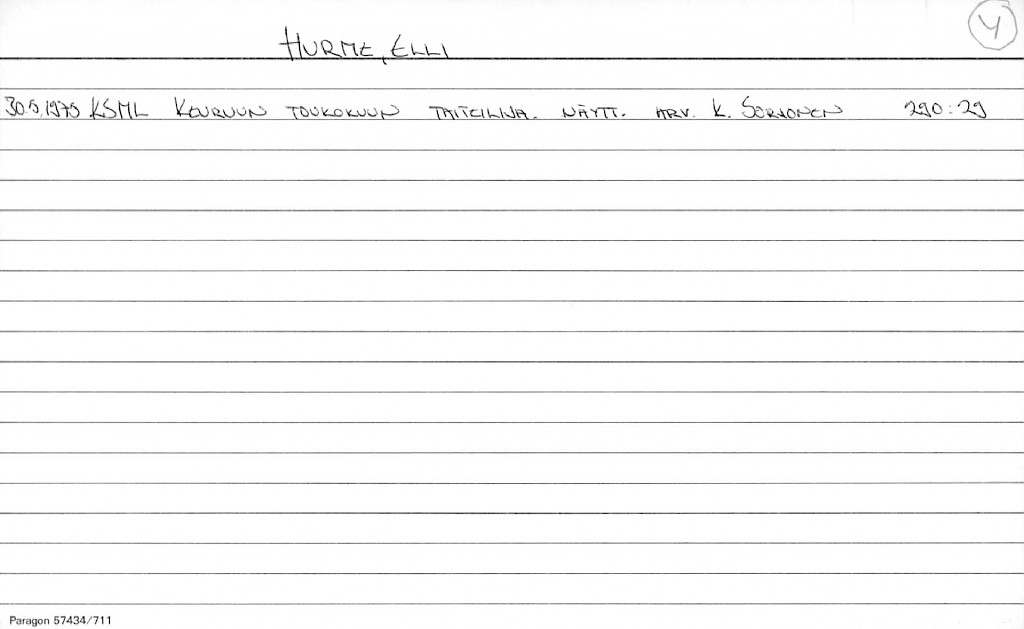 Y
HURME, ELLI
30.5.1975 KSML KEURUUN TOUKOKUUN TAITEILIJA. NÄYTT. ARV. K. SORJONEN 290:29
Paragon 57434/711